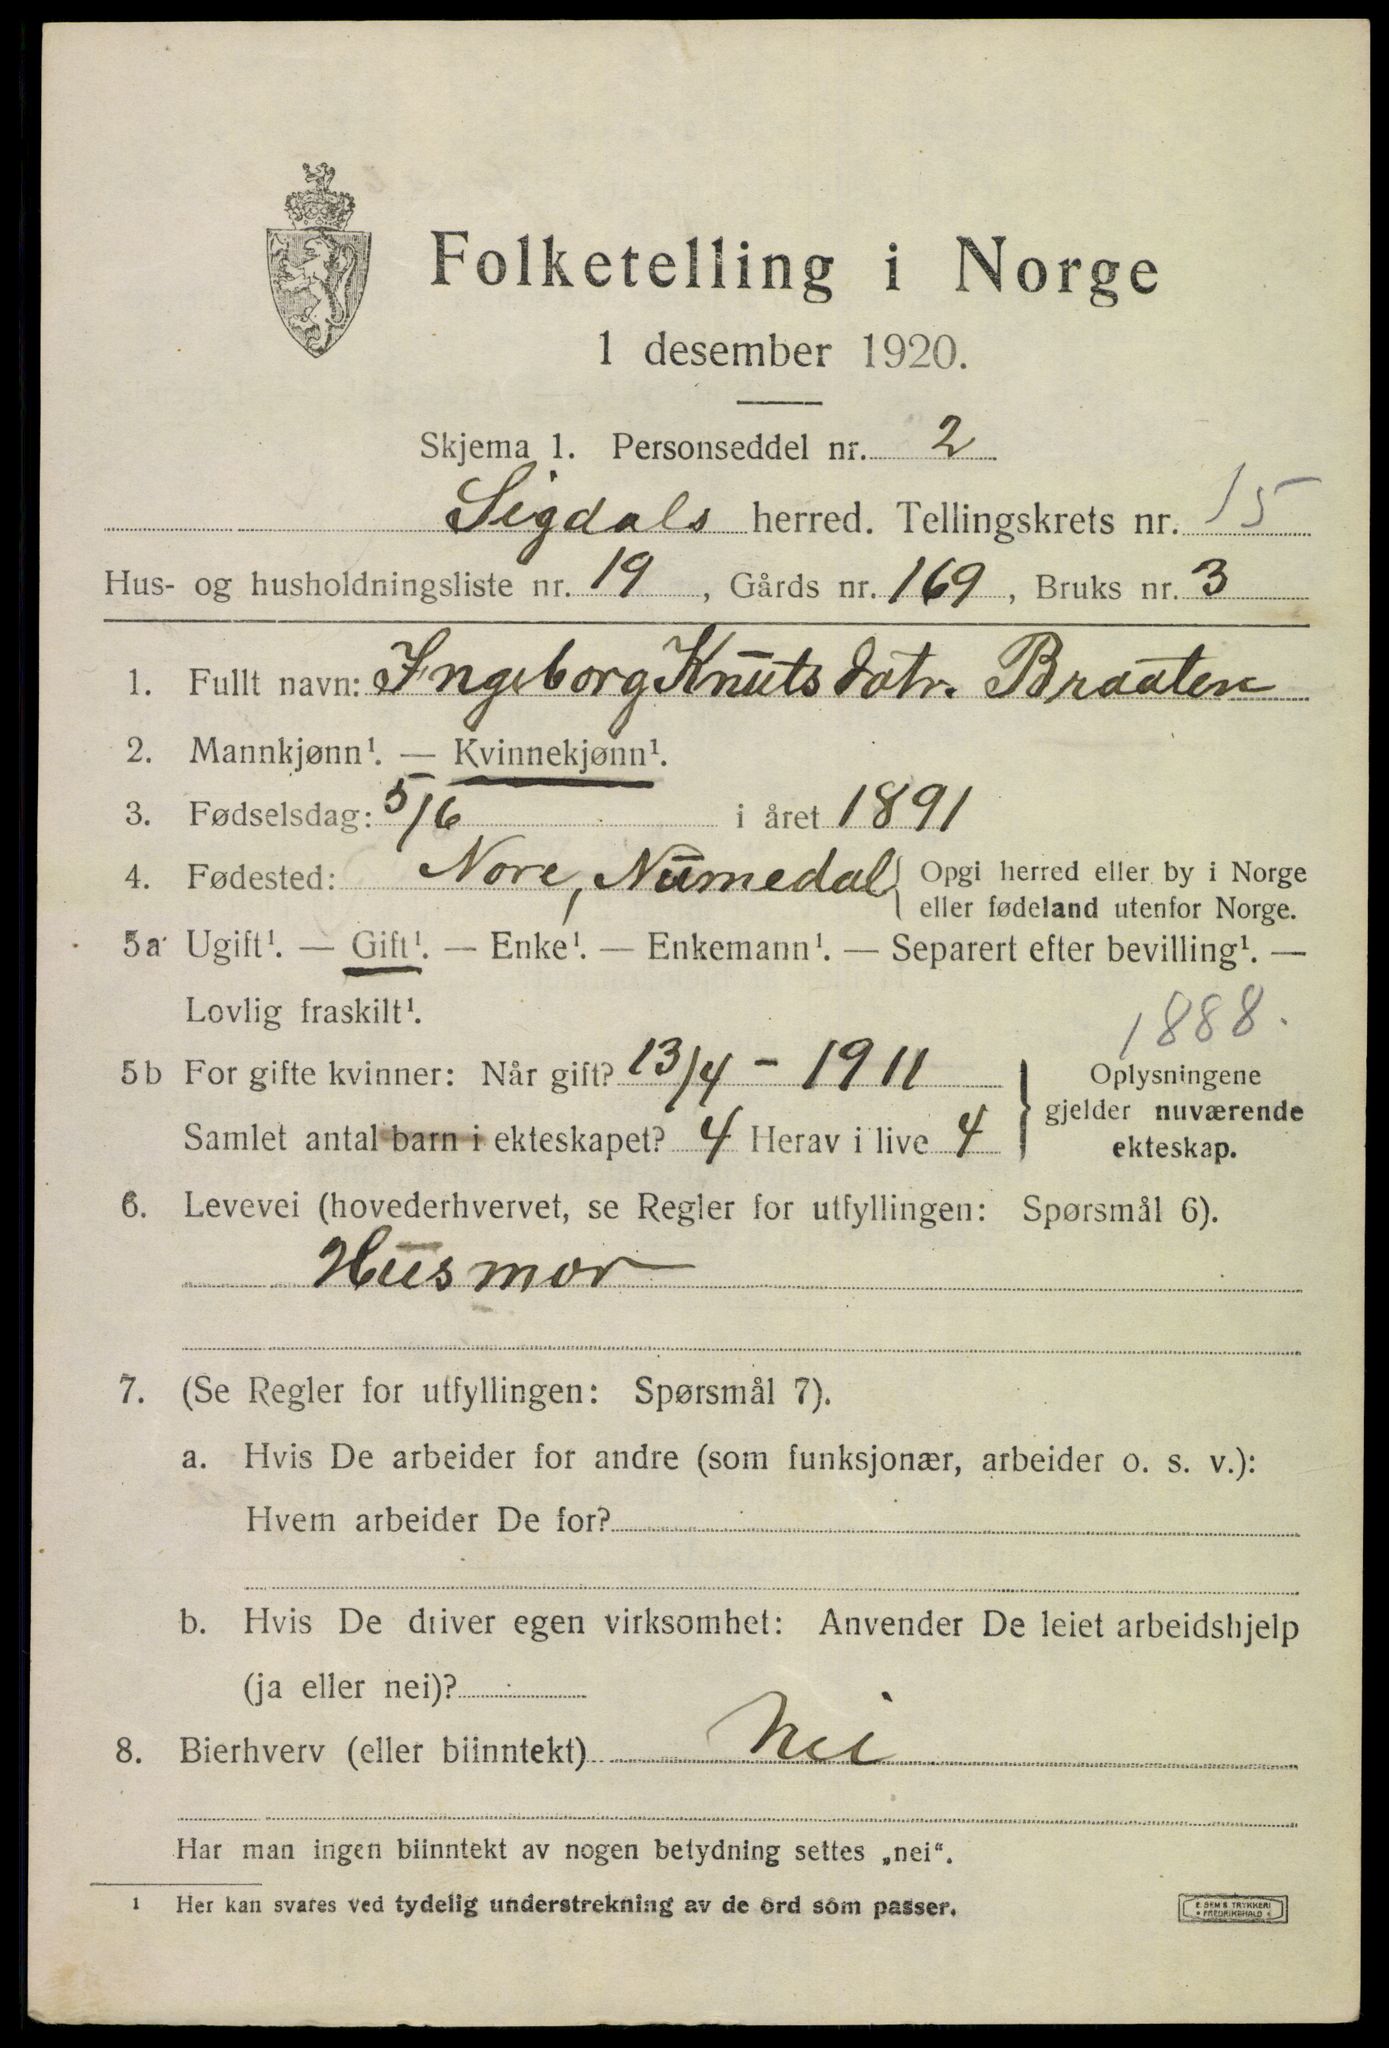 Folketelling i Norge
1 desember 1920.
Skjema 1. Personseddel nr. 2
Sigdals herred. Tellingskrets nr. 15
Hus- og husholdningsliste nr. 19, Gårds nr. 169, Bruks nr. 3
1. Fullt navn: Ingeborg Knutsdatr. Braaten
2. Mannkjønn¹. — Kvinnekjønn¹.
3. Fødselsdag: 5/6 i året 1891
4. Fødested: Nore, Numedal { Opgi herred eller by i Norge
eller fødeland utenfor Norge.
5a Ugift¹. — Gift¹. — Enke¹. — Enkemann¹. — Separert efter bevilling¹. —
Lovlig fraskilt¹.
1888.
5b For gifte kvinner: Når gift? 13/4 - 1911
Samlet antal barn i ekteskapet? 4 Herav i live 4
} Oplysningene
gjelder nuværende
ekteskap.
6. Levevei (hovederhvervet, se Regler for utfyllingen: Spørsmål 6).
Husmor
7. (Se Regler for utfyllingen: Spørsmål 7).
a. Hvis De arbeider for andre (som funksjonær, arbeider o. s. v.):
Hvem arbeider De for?
b. Hvis De driver egen virksomhet: Anvender De leiet arbeidshjelp
(ja eller nei)?
8. Bierhverv (eller biinntekt) Nei
Har man ingen biinntekt av nogen betydning settes „nei“.
1 Her kan svares ved tydelig understrekning av de ord som passer.
E. SEM'S TRYKKERI
• FREDRIKSHALD •